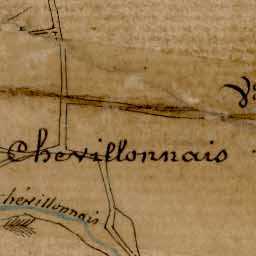 Chevillonnais
chévillonnais